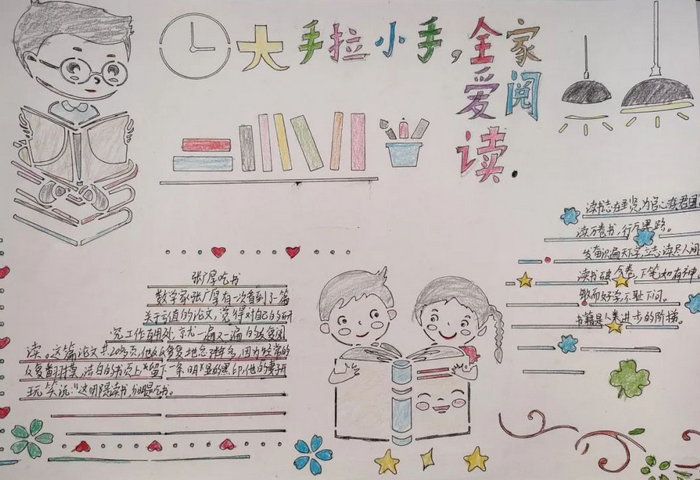 大手拉小手，全家
爱阅
读.
张广厚吃书
数学家张广厚有一次看到了一篇
关于亏值的论文，觉得对自己的研
究工作有用处，就一遍又一遍的反复阅
读。这篇论文共20多页，他反反复复地念
反复翻
洁白的书页上留下一条明显的黑印，他的妻子
玩笑说：“这哪是读书，分明是吃书。
读书志在圣贤，为官心在君国
读万卷书，行万里路。
发奋识遍天下字，立志读尽人间
读书破万卷，下笔如有神
敏而好学，不耻下问。
书籍是人类进步的阶梯。